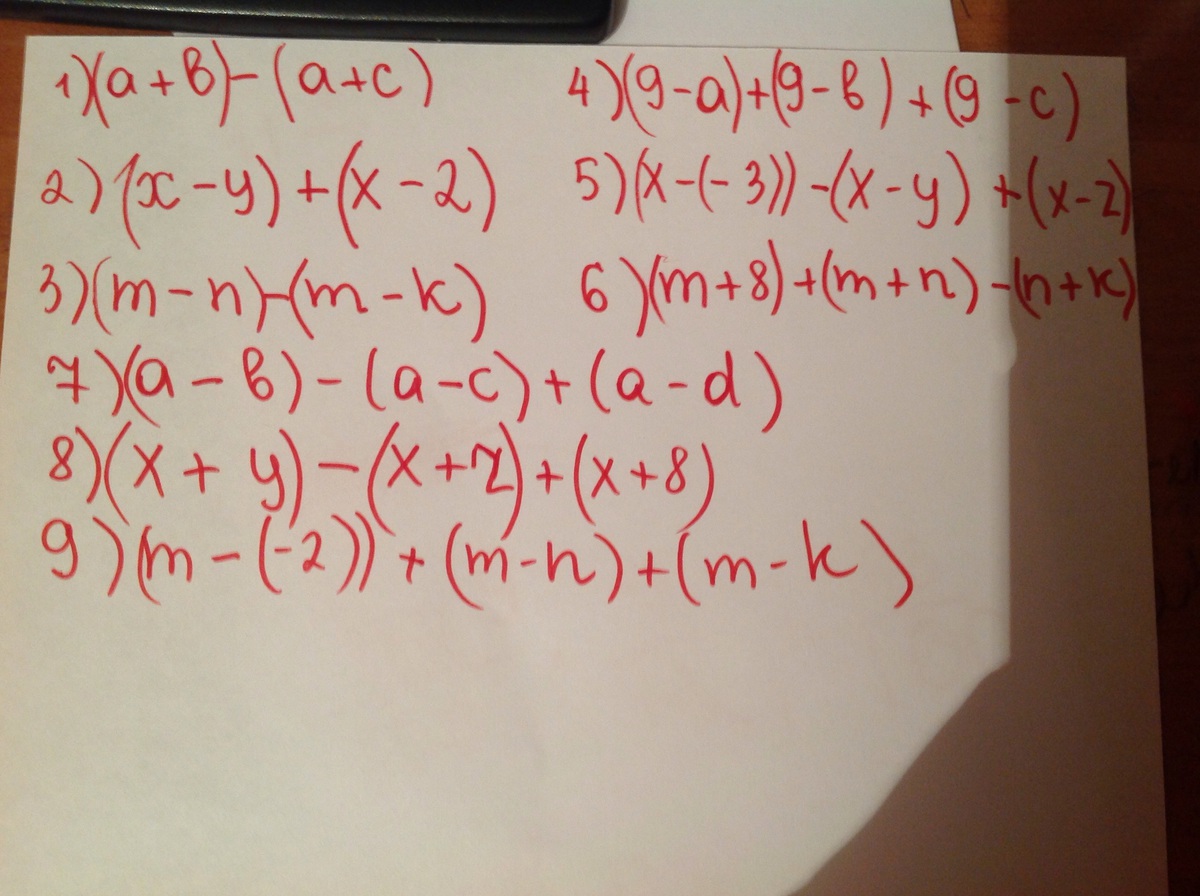 1)(a+b)-(a+c)
4)(9-a)+(9-b)+(9-c)
2)(x-y)+(x-2)
5)(x-(-3))-(x-y)+(x-z)
3)(m-n)-(m-k)
6)(m+8)+(m+n)-(n+k)
7)(a-b)-(a-c)+(a-d)
8)(x+y)-(x+z)+(x+8)
9)(m-(-2))+(m-n)+(m-k)